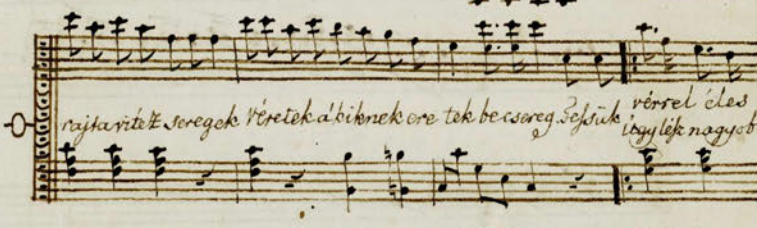 rajta vitéz seregek véretek á kiknek ere tek be csereg. Fessük vérrel éles
úgy lész nagyob